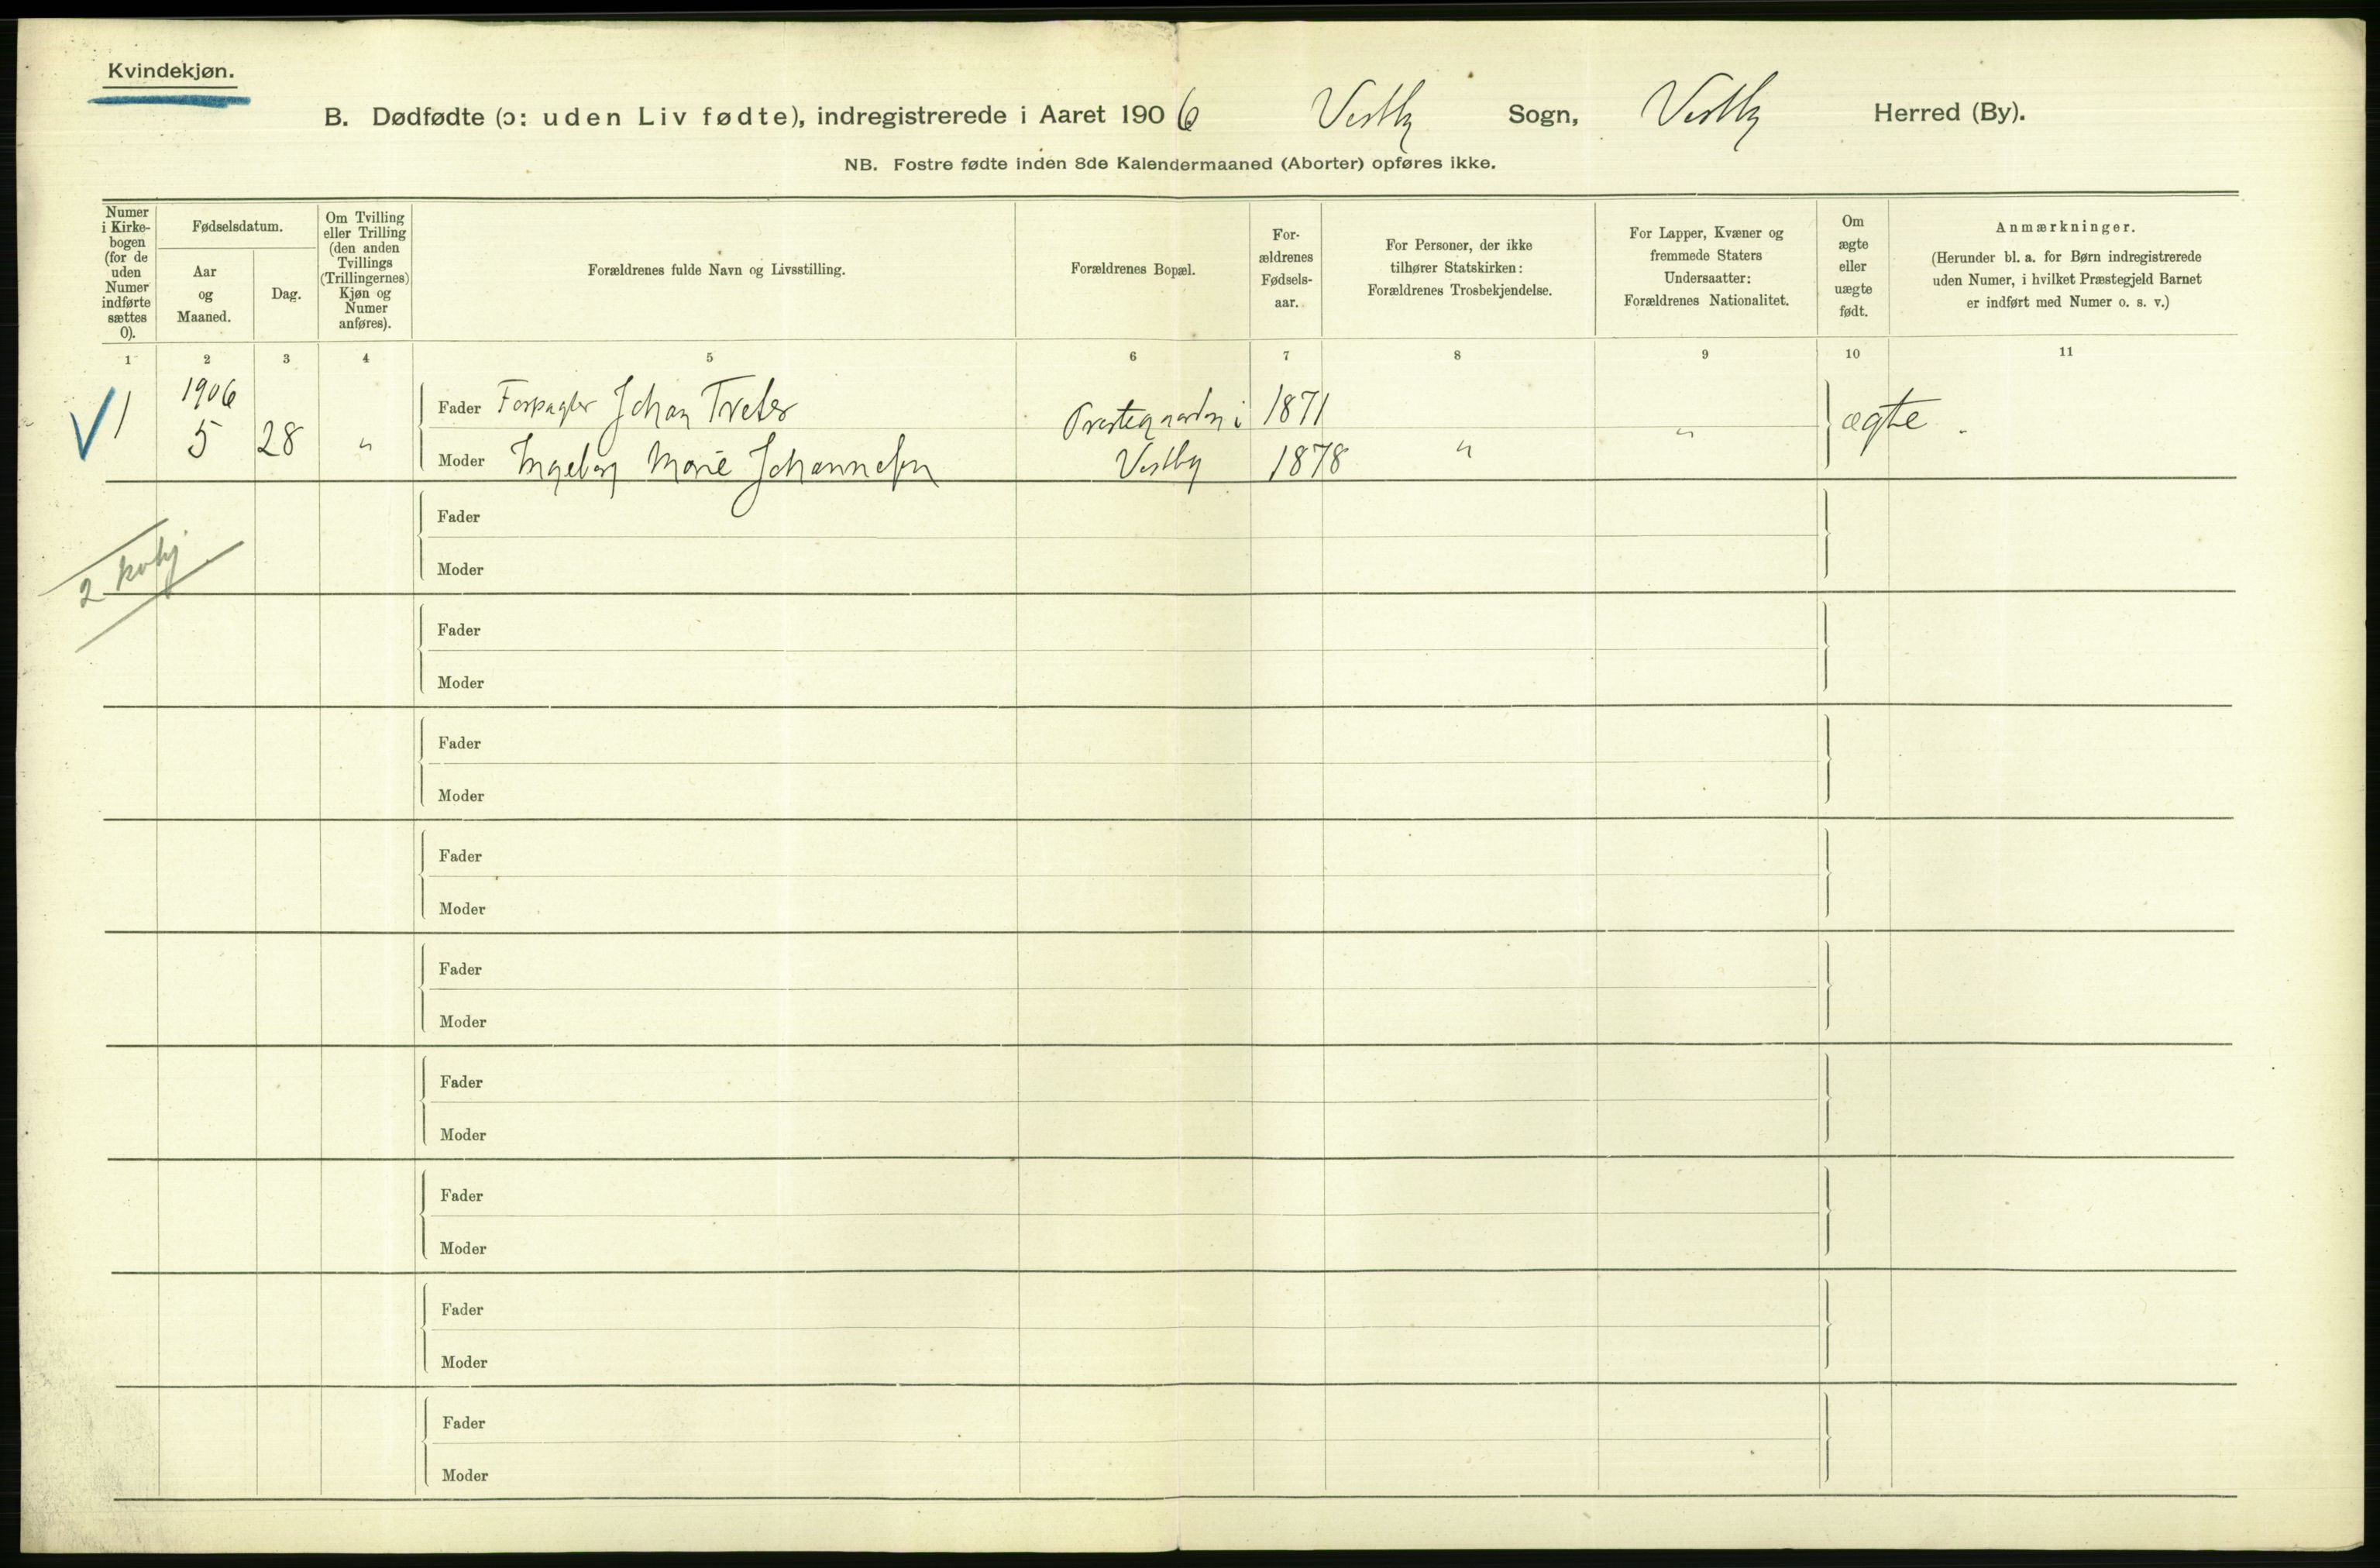 Kvindekjøn.
B. Dødfødte (ɔ: uden Liv fødte), indregistrerede i Aaret 1906 Vestby Sogn, Vestby Herred (By).
NB. Fostre fødte inden 8de Kalendermaaned (Aborter) opføres ikke.
Numer
i Kirke-
bogen
(for de
uden
Numer
indførte
sættes
0).
Fødselsdatum.
Aar
og
Maaned.
Dag.
Om Tvilling
eller Trilling
(den anden
Tvillings
(Trillingernes)
Kjøn og
Numer
anføres).
Forældrenes fulde Navn og Livsstilling.
Forældrenes Bopæl.
For-
ældrenes
Fødsels-
aar.
For Personer, der ikke
tilhører Statskirken:
Forældrenes Trosbekjendelse.
For Lapper, Kvæner og
fremmede Staters
Undersaatter:
Forældrenes Nationalitet.
Om
ægte
eller
uægte
født.
Anmærkninger.
(Herunder bl. a. for Børn indregistrerede
uden Numer, i hvilket Præstegjeld Barnet
er indført med Numer o. s. v.)
1 2 3 4 5 6 7 8 9 10 11
1906
Fader Forpagter Johan Tveter Prestegaarden i 1871
1 5 28 " " " ægte.
Moder Ingeborg Marie Johannesen Vestby 1878
Fader
Moder
2
Fader
Moder
Fader
Moder
Fader
Moder
Fader
Moder
Fader
Moder
Fader
Moder
Fader
Moder
Fader
Moder